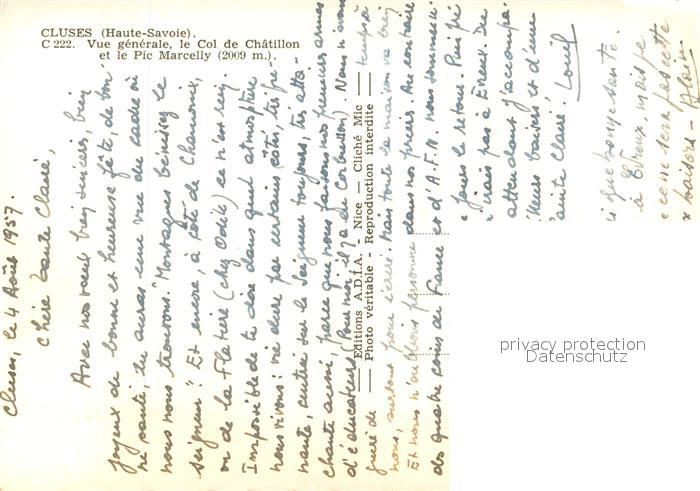 CLUSES (Haute-Savoie).
C 222. Vue générale, le Col de Châtillon
et le Pic Marcelly (2009 m.).
Editions A.D.I.A. - Nice — Cliché Mic
Photo véritable - Reproduction interdite
Cluses, le 4 Août 1957.
Chère tante Claire,
Avec nos vœux bien sincères, bien
joyeux de bonne et heureuse fête, de bon-
ne santé, tu auras une vue du cadre où
nous nous trouvons. "Montagnes bénissez le
Seigneur." Et encore, à côté de Chamonix,
ou de la Flatière (chez Odile) ce n'est rien.
Impossible de te dire dans quel atmosphère
nous vivons: ne dure par certains côtés, très pre-
nante, centrée sur le Seigneur toujours, très atta-
chante aussi, parce que nous faisons nos premières armes
d'éducateurs (Pour moi, il y a du Corbusson). Nous n'avons
guère de temps à
nous, surtout pour écrire mais toute la maison va bien
Et nous n'oublions personne dans nos prières. Au contraire
des quatre coins de France et d'A.F.N. nous sommes
jours le retour. Puis je
irais pas à Évreux. En
attendant j'accompa-
lleurs baisers et d'une
ainte Claire! Louis
que bonne santé.
à Évreux, mais je
ce ne sera pas cette
baisers -
privacy protection
Datenschutz